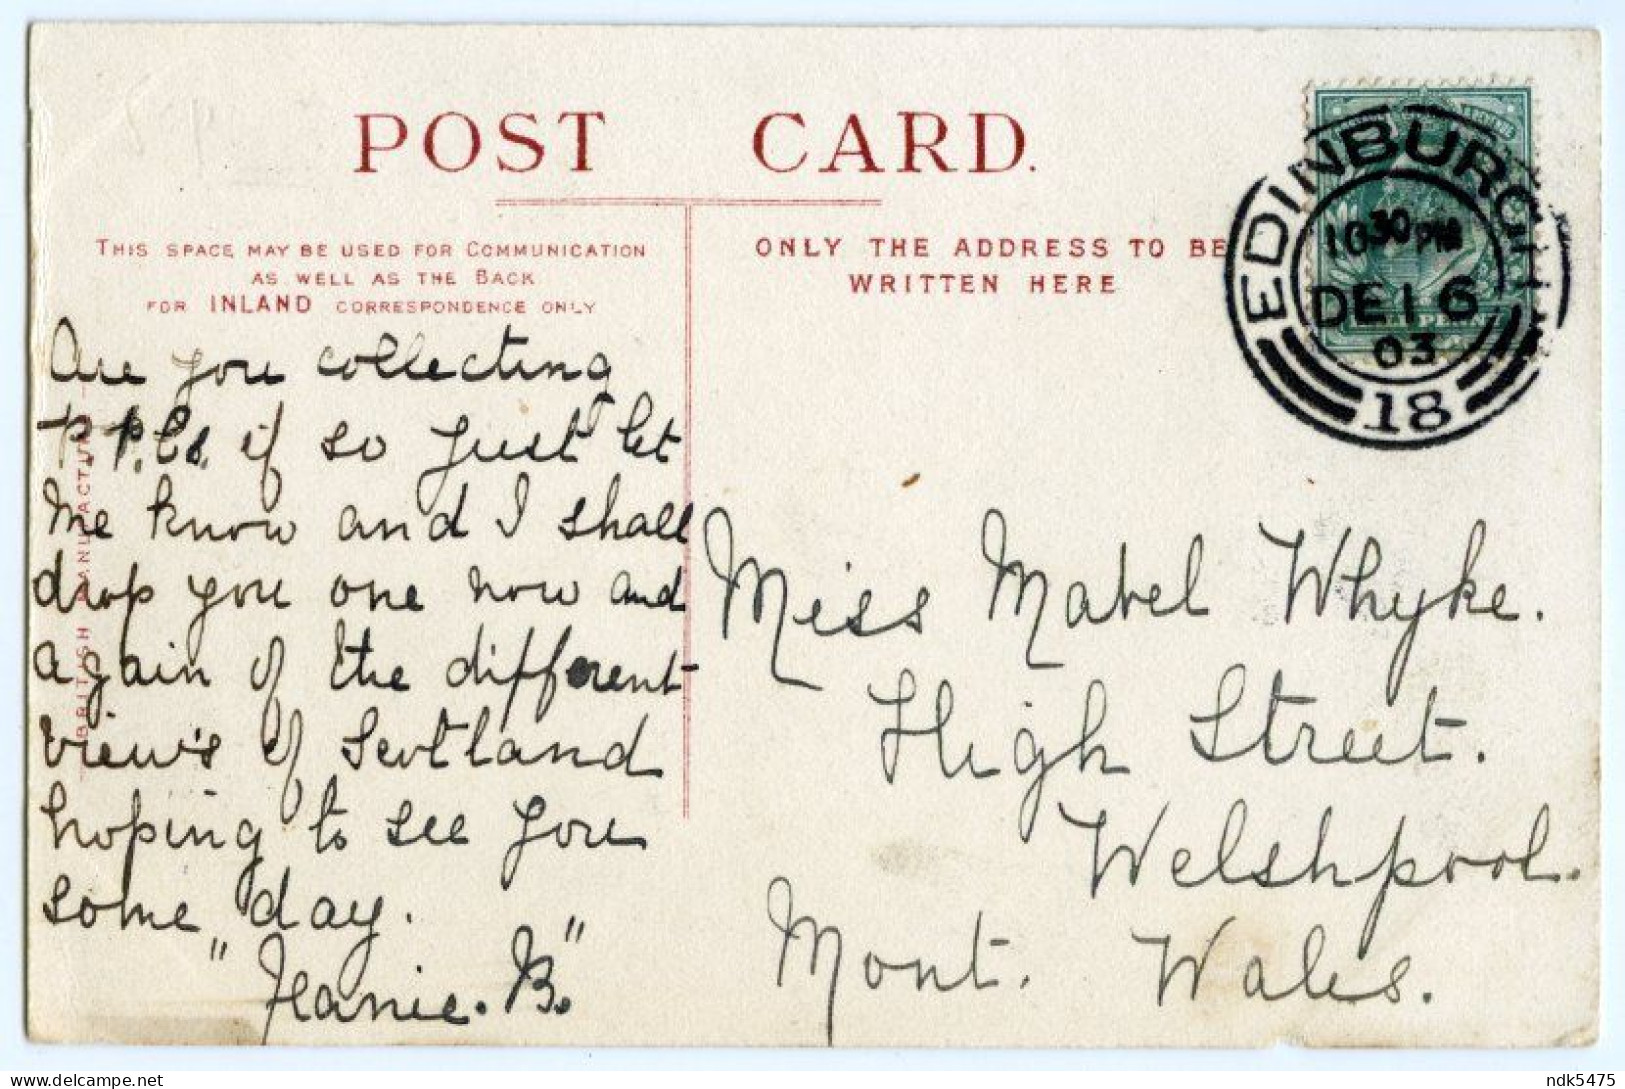 POST CARD.
THIS SPACE MAY BE USED FOR COMMUNICATION
AS WELL AS THE BACK
FOR INLAND CORRESPONDENCE ONLY
BRITISH MANUFACTURE
Are you collecting
P.P.Cs. if so just let
me know and I shall
drop you one now and
again of the different
view's of Scotland
hoping to see you
some day.
"Jeanie. B."
ONLY THE ADDRESS TO BE
WRITTEN HERE
EDINBURGH
10 30 PM
DE 16
03
18
Miss Mabel Whyke.
High Street.
Welshpool.
Mont. Wales.
ndk5475